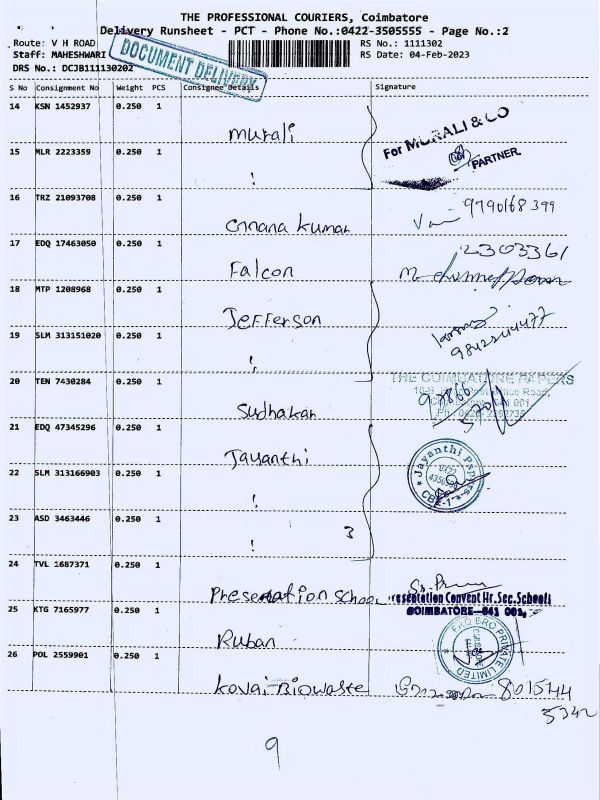 THE PROFESSIONAL COURIERS, Coimbatore
Delivery Runsheet - PCT - Phone No.:0422-3505555 - Page No.:2
Route: V H ROAD
RS No.: 1111302
Staff: MAHESHWARI
RS Date: 04-Feb-2023
DRS No.: DCJB111130202
DOCUMENT DELIVERY
S No Consignment No Weight PCS Consignee Details Signature
14 KSN 1452937 0.250 1 Murali
For MURALI & CO
PARTNER.
15 MLR 2223359 0.250 1 !
16 TRZ 21093708 0.250 1 Gnana kumar 9790168399
17 EDQ 17463050 0.250 1 Falcon 2303361
18 MTP 1208968 0.250 1 Jefferson
19 SLM 313151020 0.250 1 !
9842244477
20 TEN 7430284 0.250 1 Sudhakar
THE COIMBATORE PAPERS
21 EDQ 47345296 0.250 1 Jayanthi
Jayanthi
22 SLM 313166903 0.250 1 !
CBE-1
23 ASD 3463446 0.250 1 ! 3
24 TVL 1687371 0.250 1 Presentation School
Presentation Convent Hr.Sec.School
COIMBATORE-641 001.
25 KTG 7165977 0.250 1 Ruban
BRO PRIVATE LIMITED
26 POL 2559901 0.250 1 Kovai Biowaste 8015744
5342
9